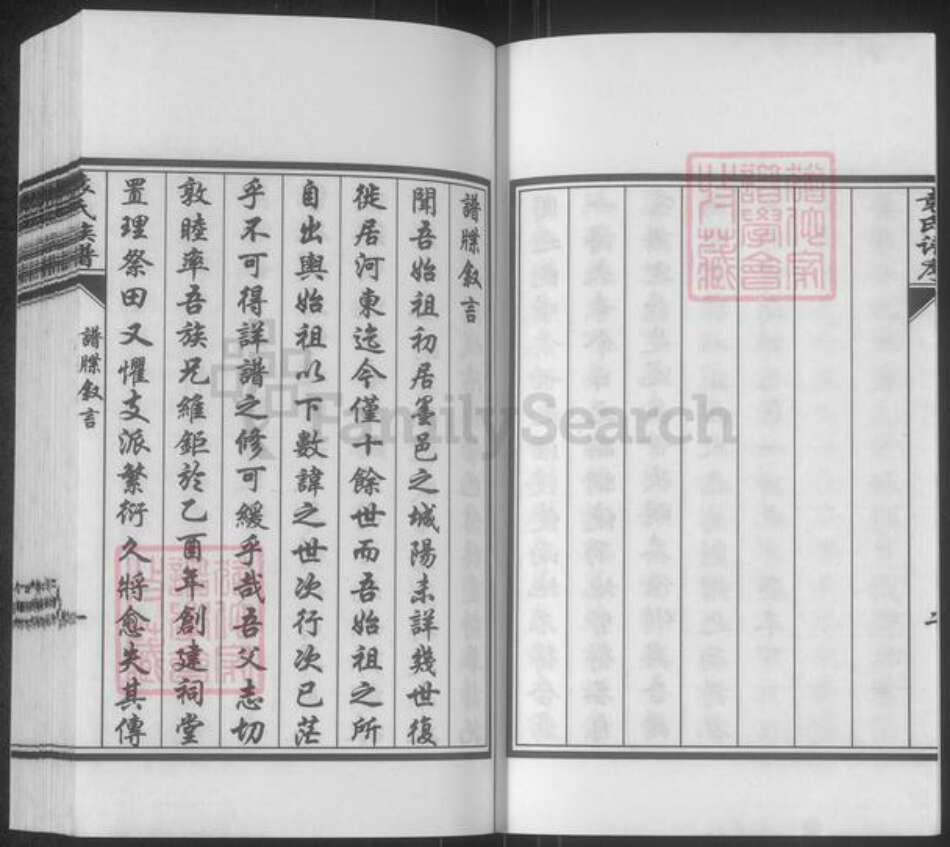 譜牒叙言
聞吾始祖初居墨邑之城陽未詳幾世復
徙居河東迄今僅十餘世而吾始祖之所
自出與始祖以下數諱之世次行次已茫
乎不可得詳譜之修可緩乎哉吾父志切
敦睦率吾族兄維鉅於乙酉年創建祠堂
置理祭田又懼支派繁衍久將愈失其傳
氏族譜
譜牒叙言
一
FamilySearch